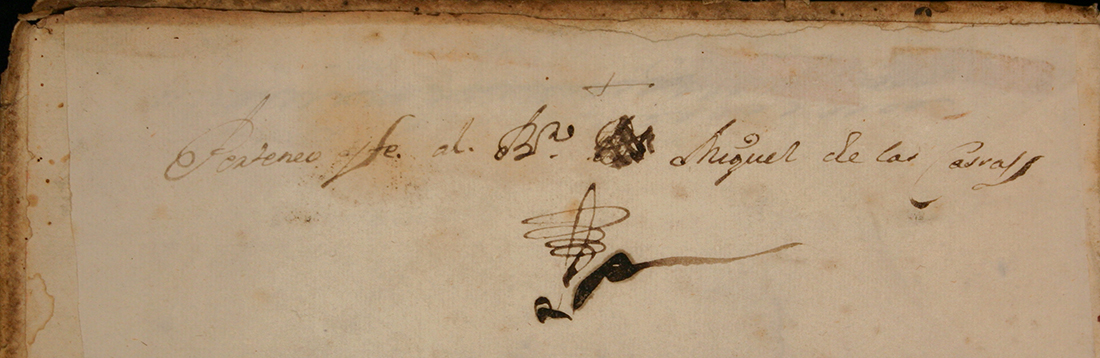 Pertenec este. al. Br. Miguel de las Casas